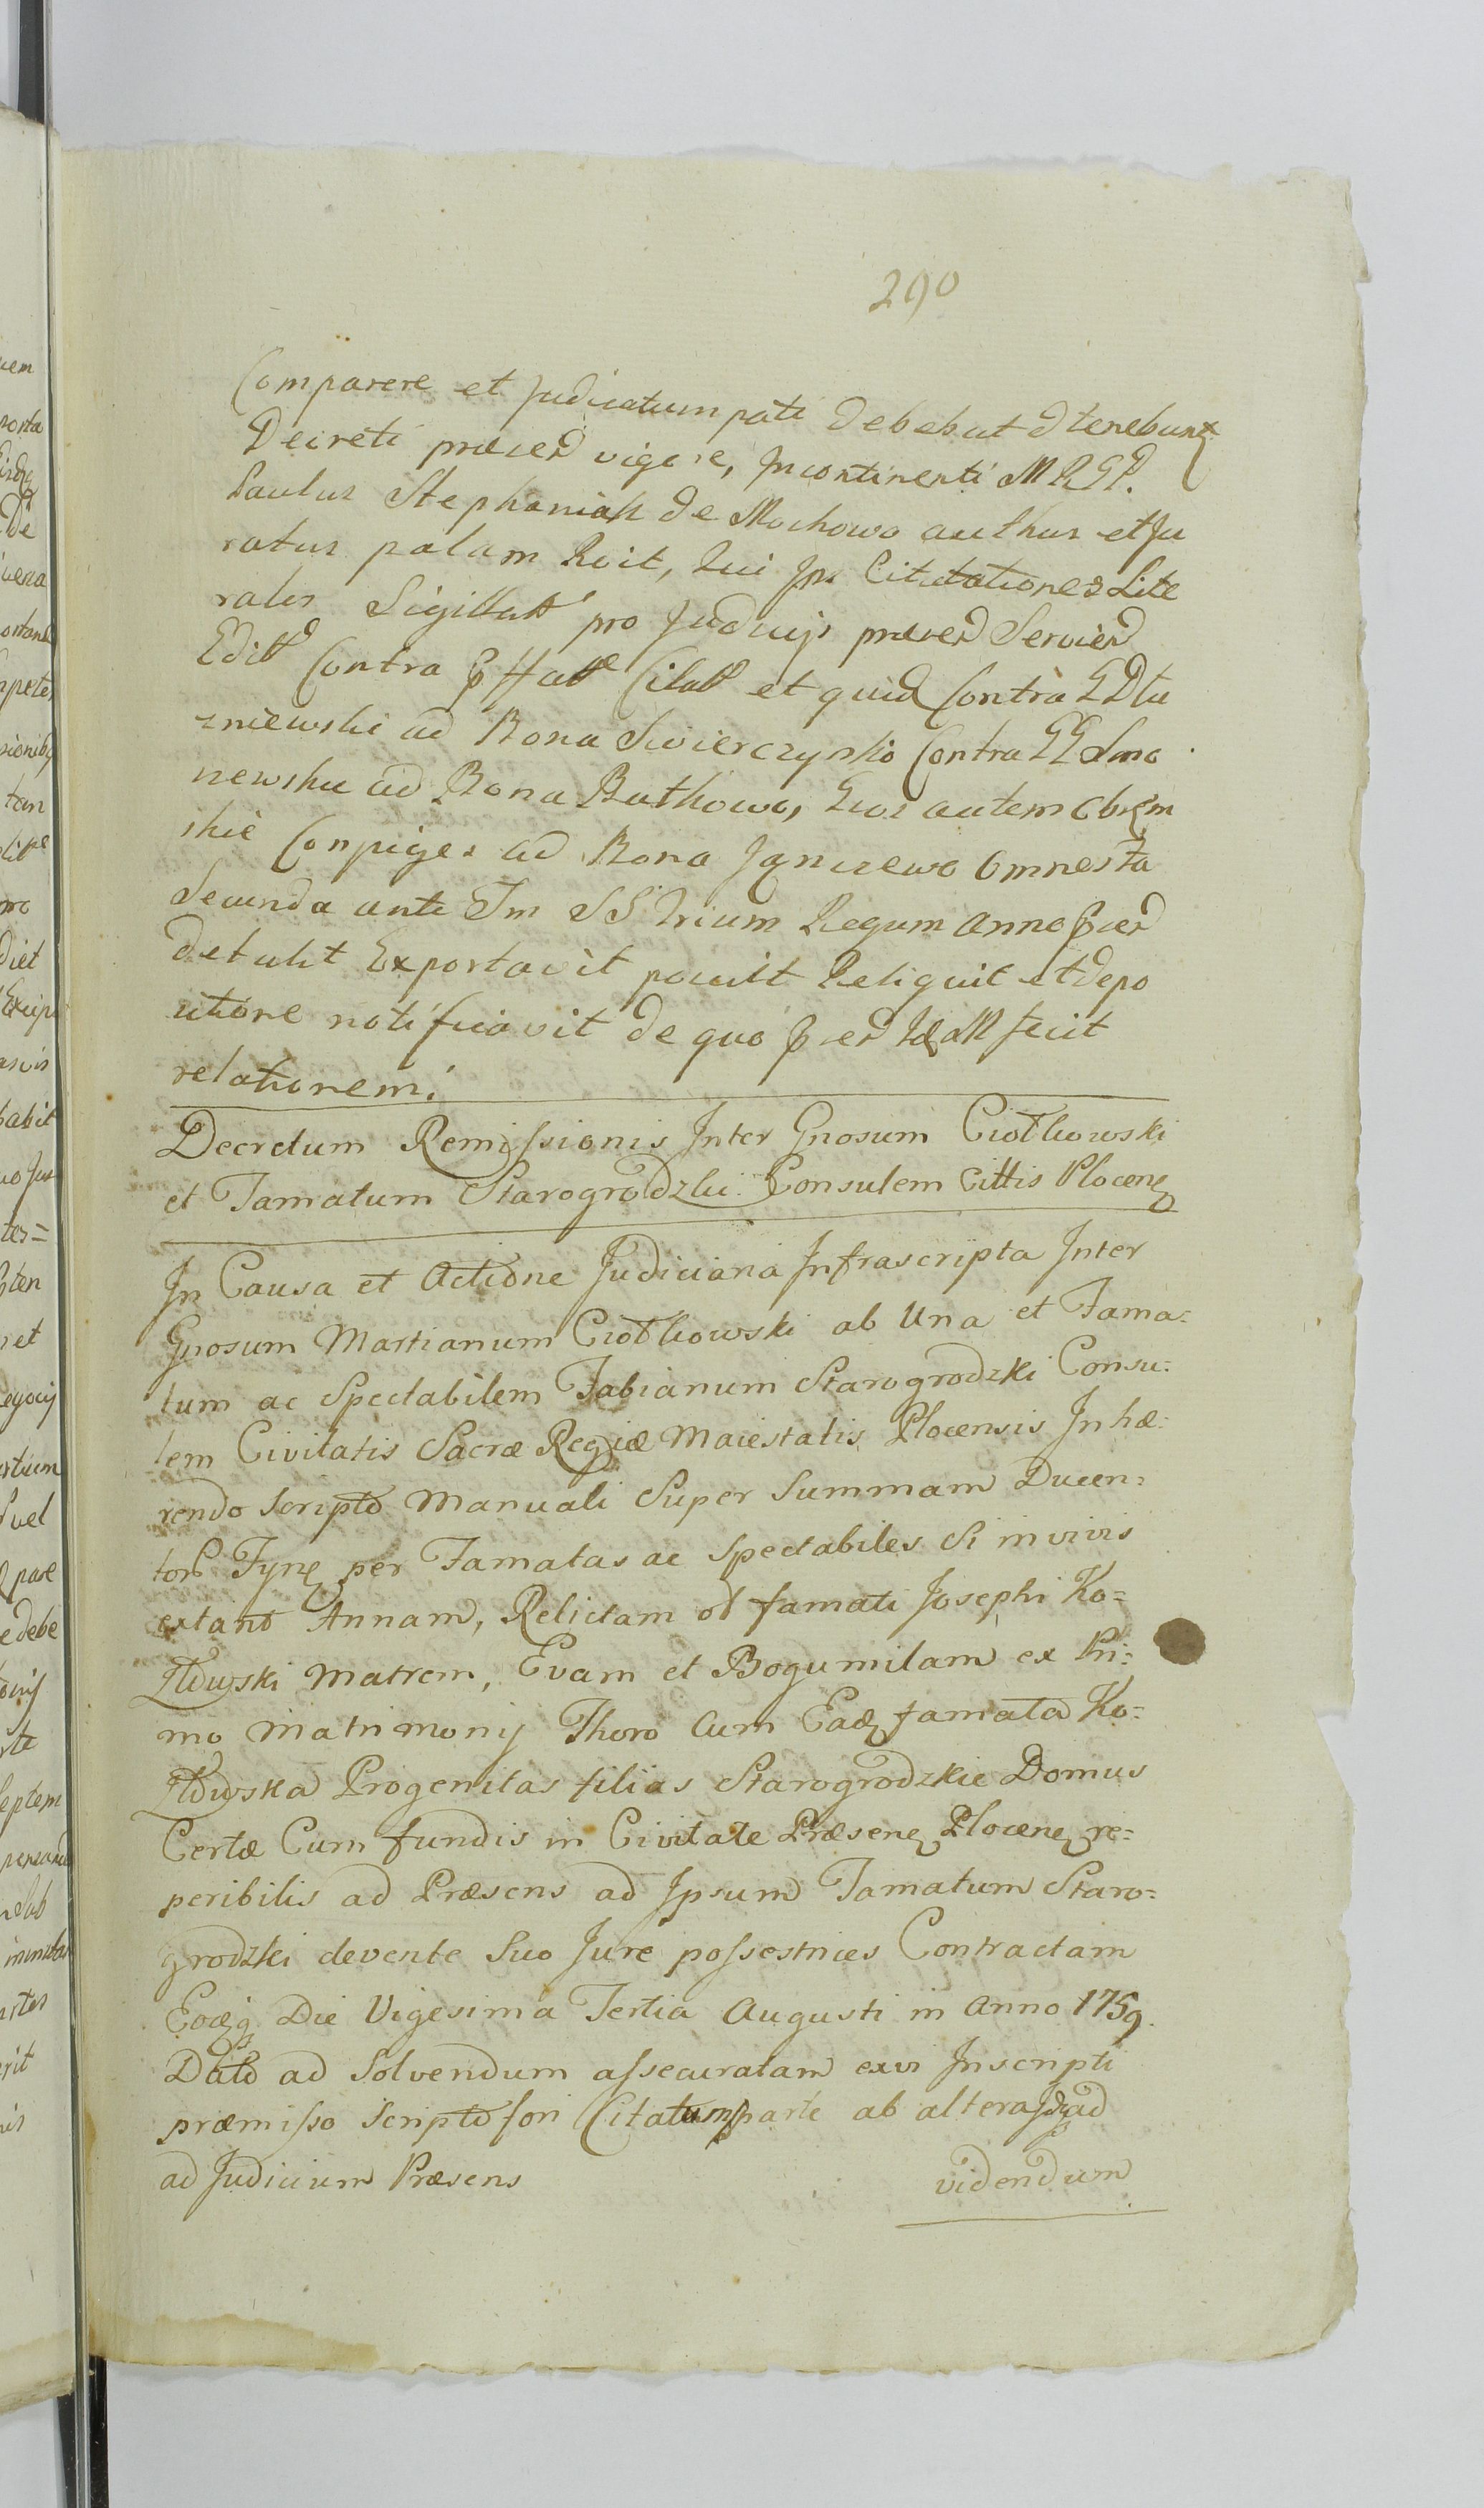 290
Comparere et Judicatum pati debebut et tenebunt
Decreti præced vigore, Incontinenti MRGP.
Paulus Stephaniak de Mochowo authus et Ju
ratus palam Rcit, Qui Ips Citatationes Lite
rales Sigillatt pro Judicijs præced Servied
Edit Contra Citatt et quid Contra GDłu
zniewski ad Bona Swierczynko Contra GG Smo
newskie ad Bona Rutkowo, Gios autem
skie Conjuges ad Bona Ignicewo Omnes fa
Secunda ante Fm SS Trium Regum Anno
detulit Exportavit posuit Reliquit et depo
sitione notificavit de quo fecit
relationem.
Decretum Remissionis Inter Gnosum Ciołkowski
et Famatum Starogrodzki Consulem Cittis Plocen
In Causa et Actione Judiciaria Infrascripta Inter
Gnosum Martianum Ciołkowski ab Una et Fama=
tum ac Spectabilem Fabianum Starogrodzki Consu=
lem Civitatis Sacræ Regiæ Maiestatis Plocensis Inhæ=
rendo Scripto Manuali Super Summam Ducen=
tor Fyn per Famatas ac Spectabiles Si in vivis
extant Annam, Relictam ol famati Josephi Ko=
złowski Matrem, Evam et Bogumilam ex Pri=
mo Matrimonij Thoro Cum Ead famata Ko=
złowska Progenitas filias Starogrodzkie Domus
Certæ Cum fundis in Civitate Præsen Plocen re=
peribilis ad Præsens ad Ipsum Famatum Staro=
grodzki devente Suo Jure possestrices Contractam
Eodq Die Vigesima Tertia Augusti in Anno 1759.
Dato ad Solvendum assecuratam exvi Inscripti
præmisso Scripto fori Citatum parte ab altera Idq ad
ad Judicium Præsens videndum